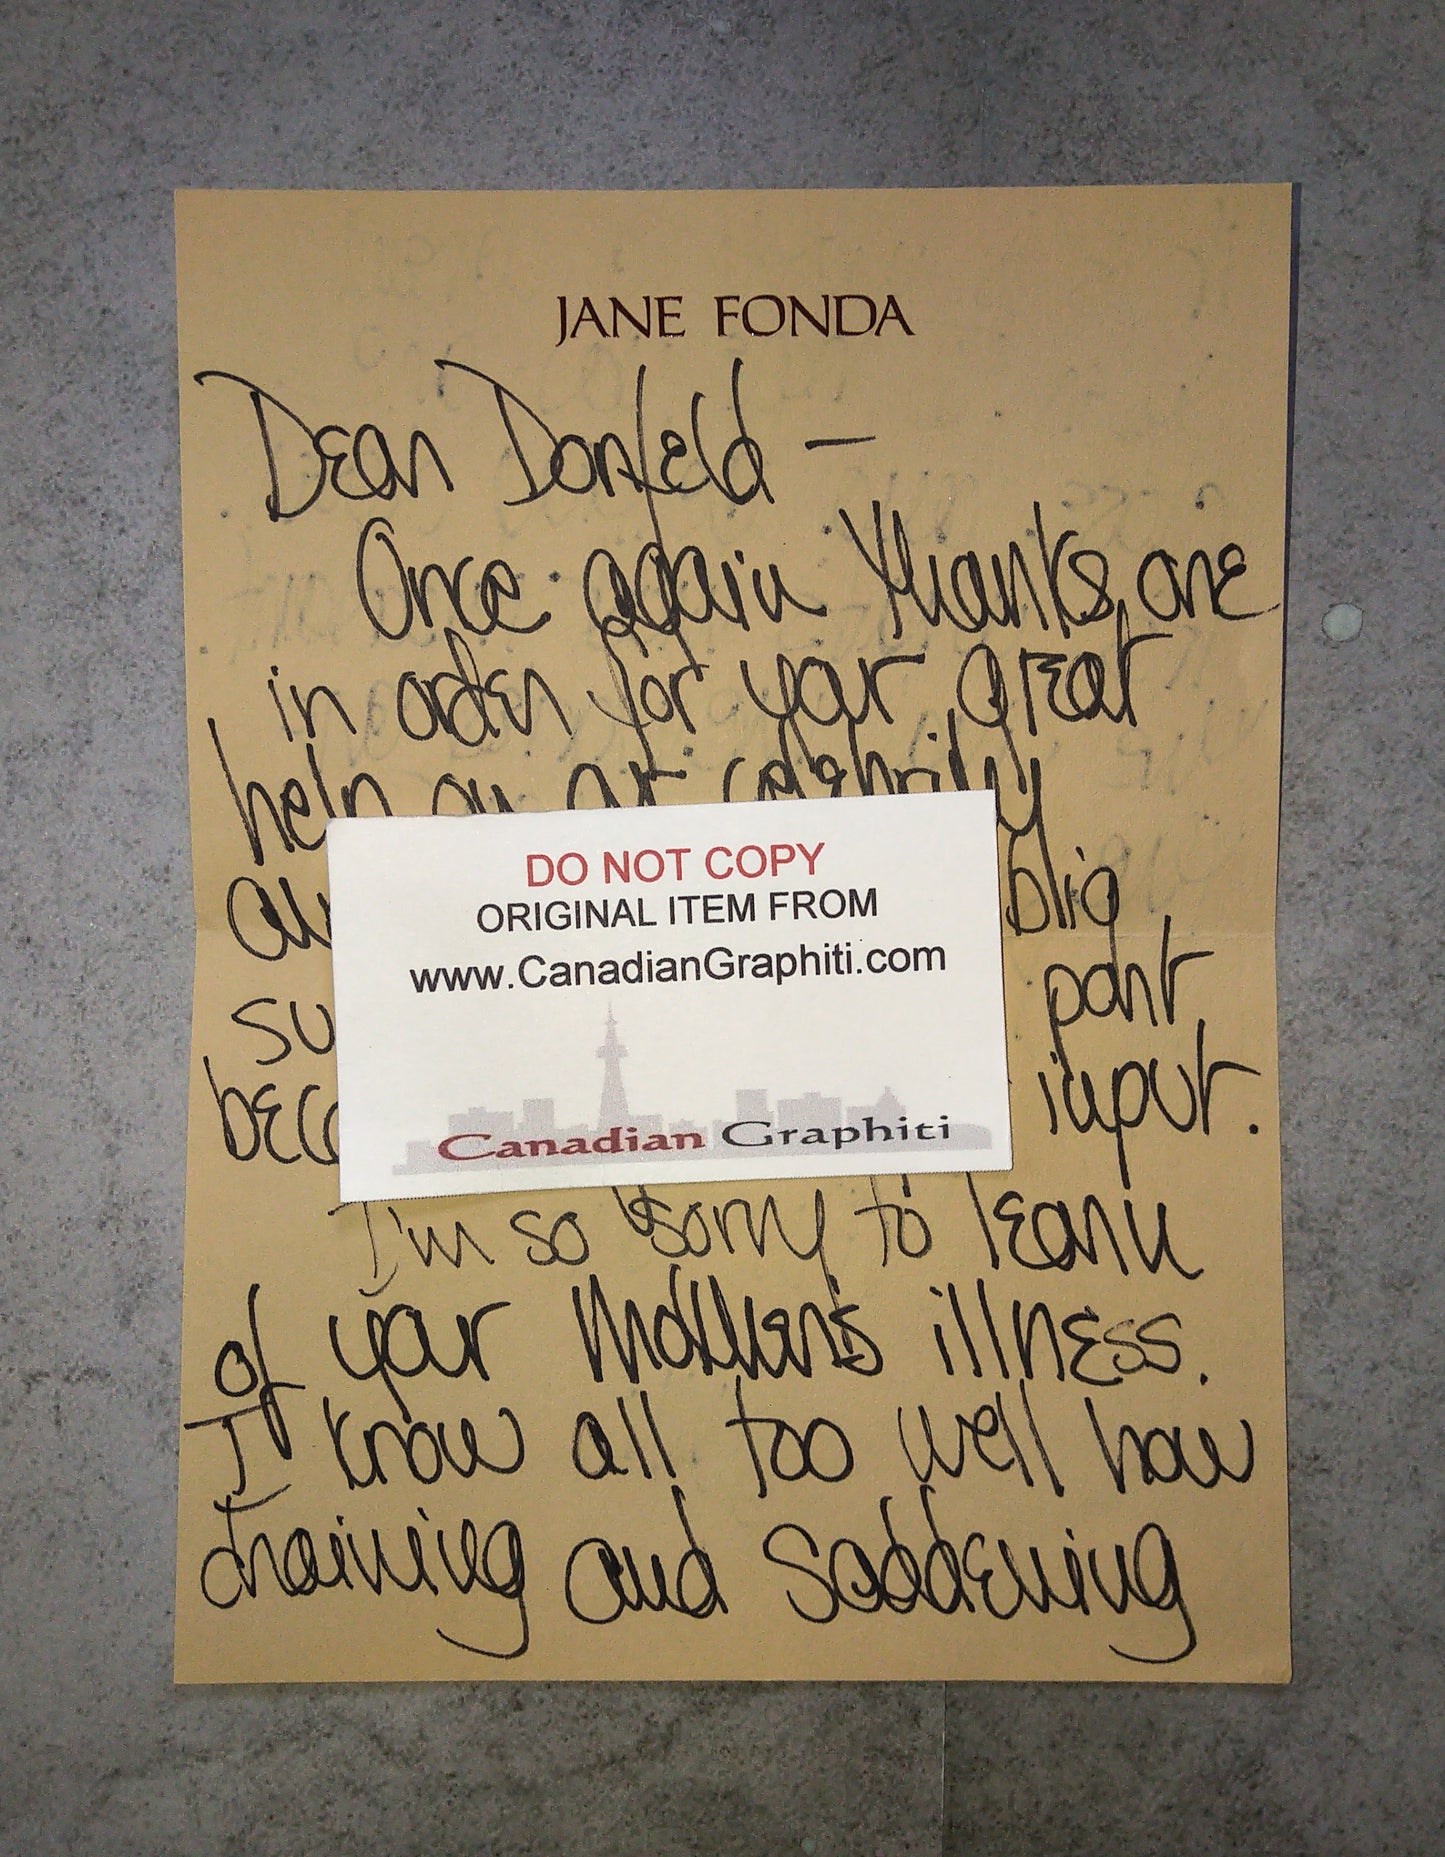 JANE FONDA
Dear Donfeld —
Once again thanks are
in order for your great
help on our celebrity
blic
su part
bec input.
DO NOT COPY
ORIGINAL ITEM FROM
www.CanadianGraphiti.com
Canadian Graphiti
I'm so sorry to learn
of your Mother's illness.
I know all too well how
draining and saddening